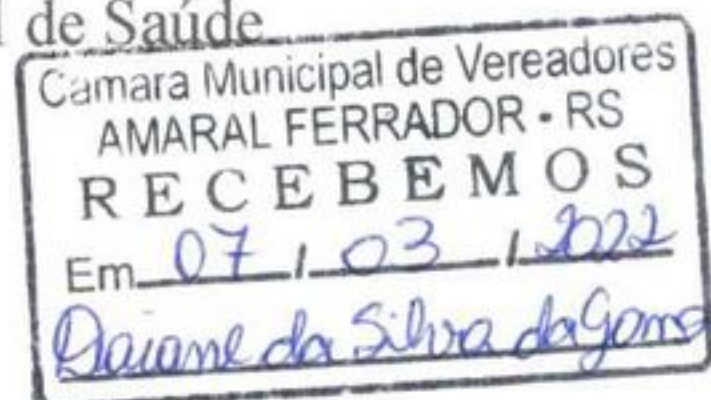 de Saúde
Camara Municipal de Vereadores
AMARAL FERRADOR - RS
RECEBEMOS
Em 07 / 03 / 2022
Daiane da Silva da Gama